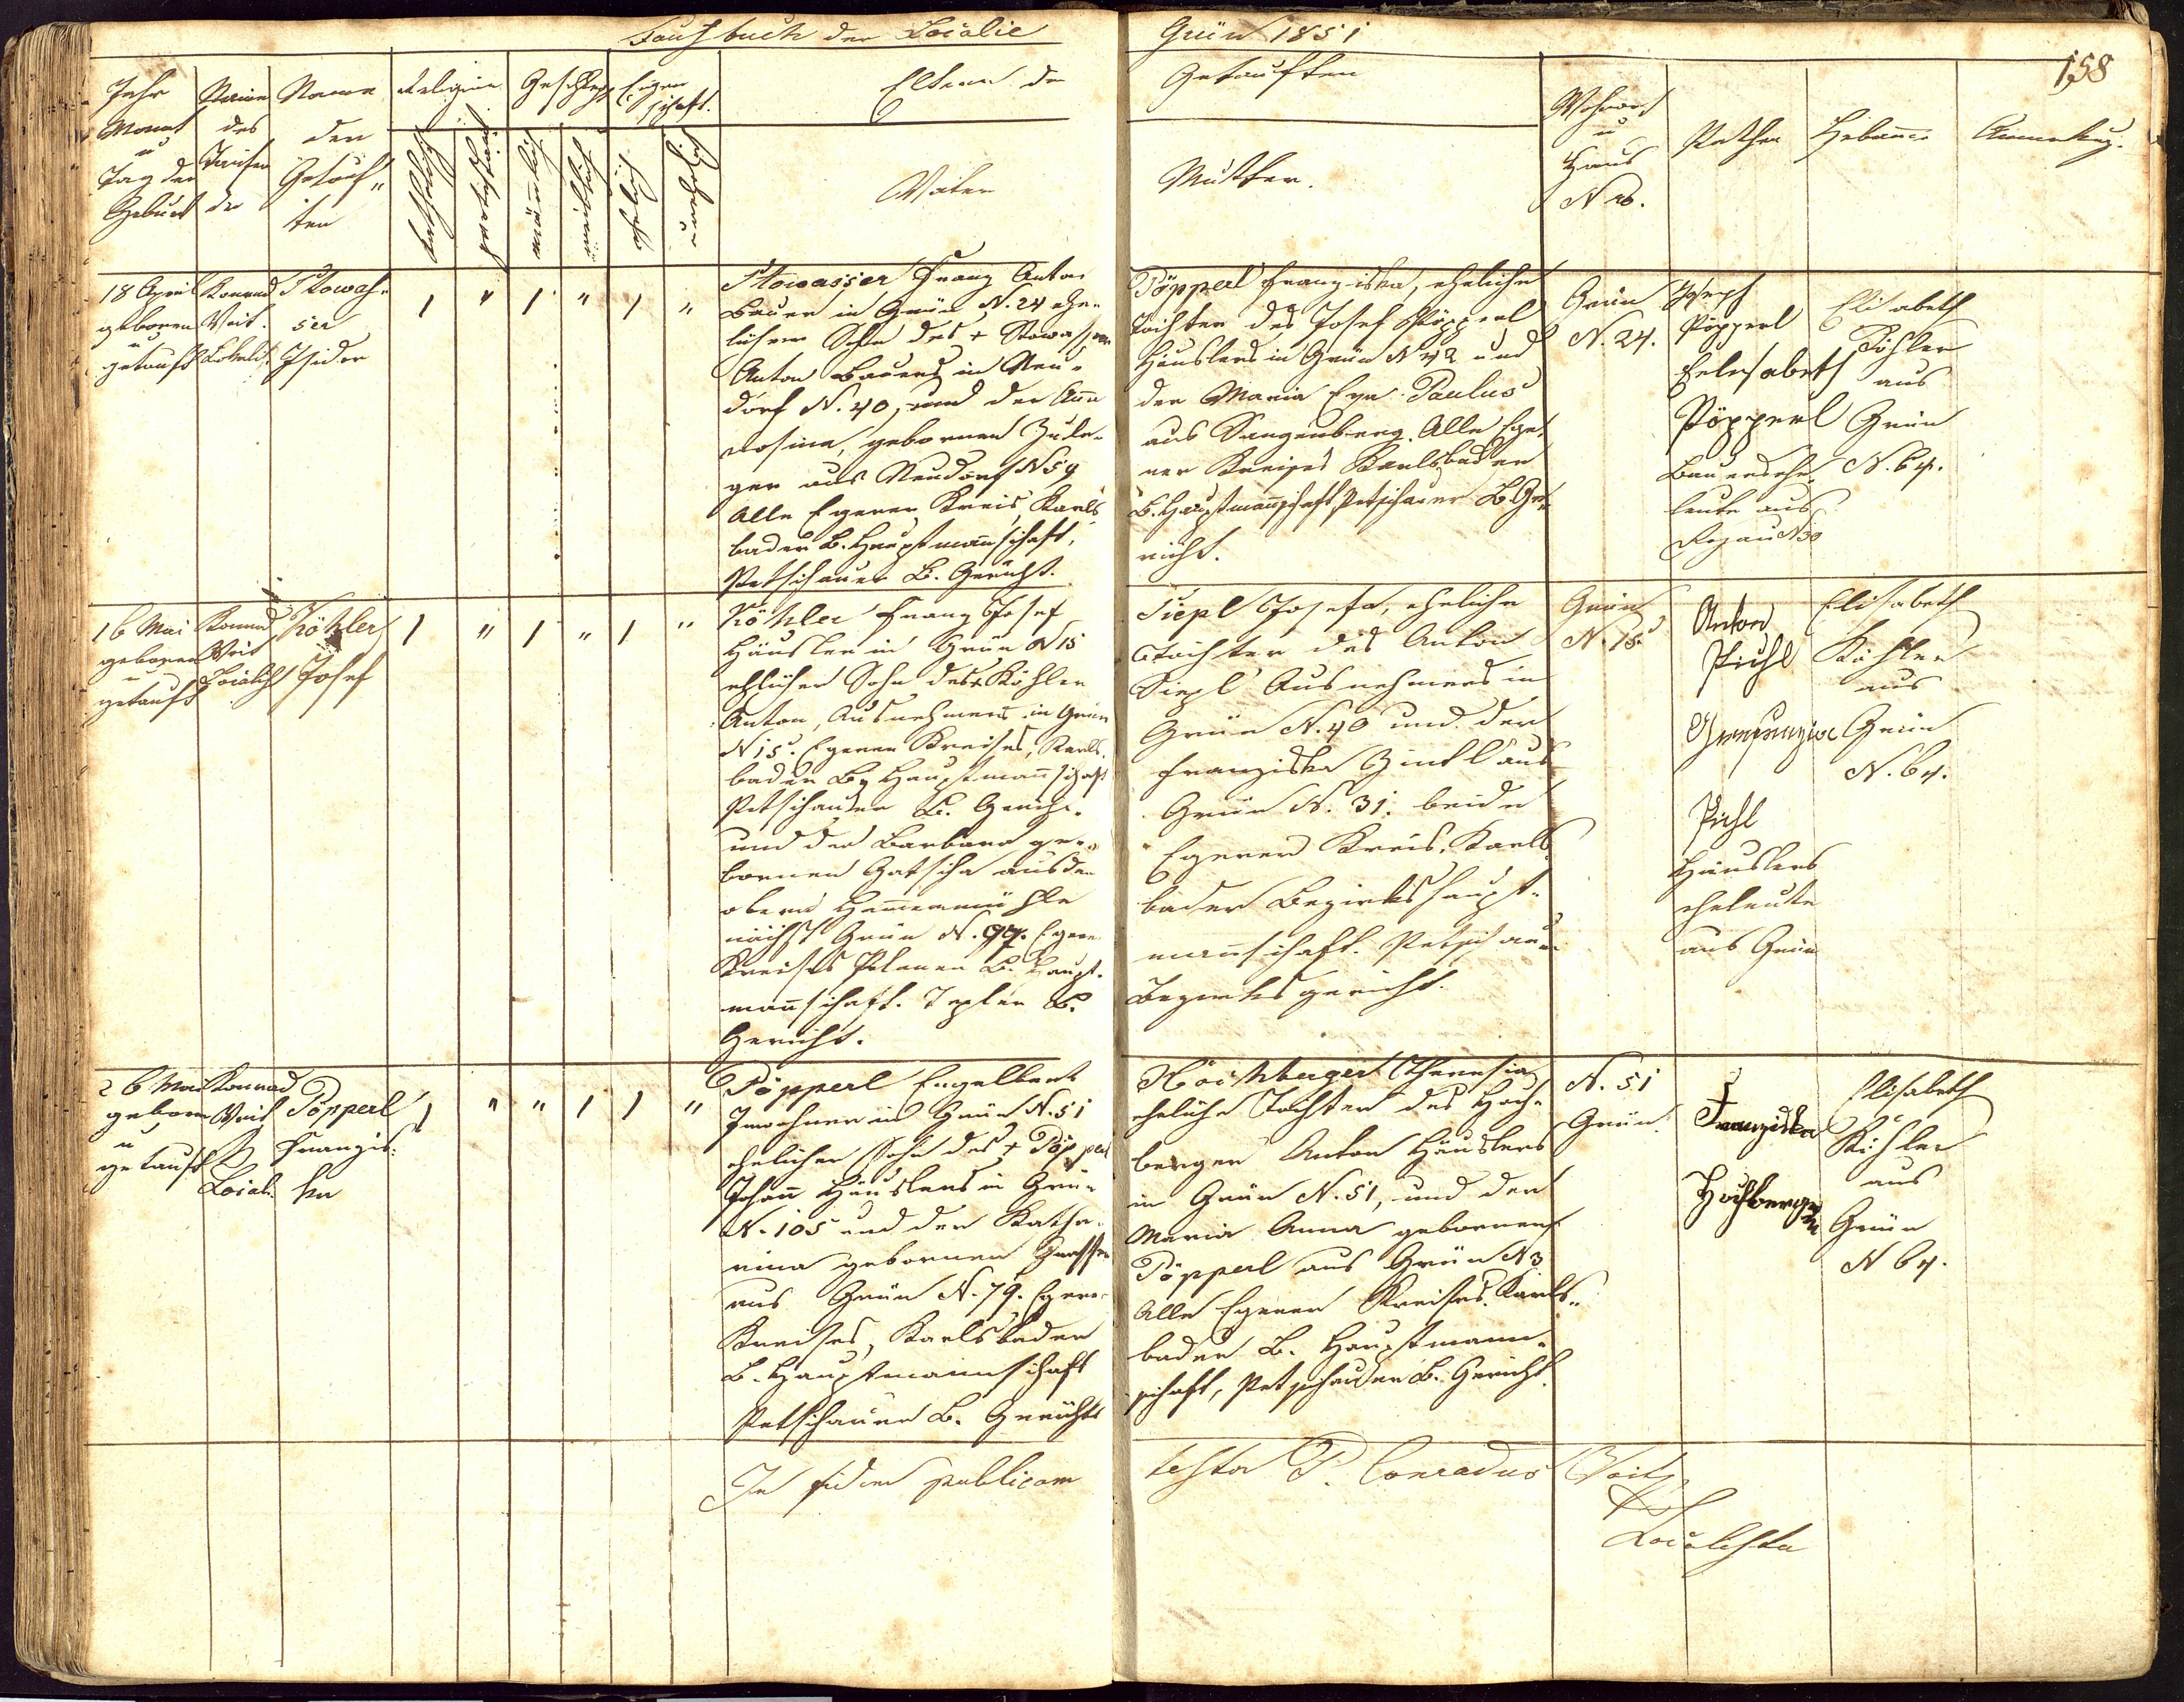 Taufbuch der Localie
Grün 1851
158
Jahr
Monat
u
Tag der
Geburt
Name
des
Taufen
de
Name
der
Getauf"
ten
Religion
Geschlecht
Eigen
schaft.
katholisch
protest.
männlich
weiblich
ehelich
unehel.
Eltern der
Vater
Getauften
Mutter.
Wohnort
u
Haus
Nro.
Pathen
Hebamme
Anmerkug.
18 April
geboren
u
getauft
Konrad
Veit.
Lokalist
Stowas-
ser
Isidor
1 " 1 " 1 "
Stowasser Franz Anton
Bauer in Grün N. 24 ehe-
licher Sohn des + Stowasser
Anton Bauers in Neu-
dorf N. 40, und der Anna
Rosina, gebornen Zule-
ger aus Neudorf N 59
Alle Egerer Kreis, Karls
bader B. Hauptmannschaft,
Petschauer B. Gericht.
Pöpperl Franziska, eheliche
Tochter des Josef Pöpperl
Häuslers in Grün N 42 und
der Maria Eva Paulus
aus Sangerberg. Alle Ege-
rer Kreises Karlsbader
B. Hauptmannschaft Petschauer B. Ge-
richt.
Grün
N. 24.
Joseph
Pöpperl
Elisabeth
Pöpperl
Bauersehe-
leute aus
N 30
Elisabeth
Köhler
aus
Grün
N. 64.
16 Mai
geboren
u
getauft
Konrad
Veit
Localist
Köhler
Josef
1 " 1 " 1 "
Köhler Franz Josef
Häusler in Grün N 15
ehlicher Sohn des Köhler
Anton, Ausnehmers in Grün
N 15. Egerer Kreises, Karls-
bader Bz Hauptmannschaft
Petschauer B. Gericht.
und der Barbara ge-
bornen Gatscha aus der
obern Hammermühle
nächst Grün N. 97. Egerer
Kreises Planer B. Haupt-
mannschaft. Tepler B.
Gericht.
Siepl Josefa, eheliche
Tochter des Anton
Siepl Ausnehmers in
Grün N. 40 und der
Franziska Zintl aus
Grün N. 31. beide
Egerer Kreis. Karls
bader Bezirkshaupt-
mannschaft. Petschauer
Bezirksgericht.
Grün
N. 15.
Anton
Pichl
Pichl
Häuslers
eheleute
aus Grün
Elisabeth
Köhler
aus
Grün
N. 64.
26 Mai
geboren
u
getauft
Konrad
Veit
Local.
Pöpperl
Franzis-
ka
1 " " 1 1 "
Pöpperl Engelbert
Inwohner in Grün N. 51
ehelicher Sohn des + Pöpperl
Johann Häuslers in Grün
N. 105 und der Katha-
rina gebornen
aus Grün N. 79. Egerer
Kreises, Karlsbader
B. Hauptmannschaft
Petschauer B. Gerichts
Hochberger Theresia
eheliche Tochter des Hoch-
berger Anton Häuslers
in Grün N. 51, und der
Maria Anna gebornen
Pöpperl aus Grün N 3
Alle Egerer Kreises. Karls-
bader B. Hauptmann-
schaft, Petschauer B. Gericht.
N. 51
Grün.
Franziska
Hochberger
Elisabeth
Köhler
aus
Grün
N 64.
In fidem publicam
testor P. Conradus Veit
Localista